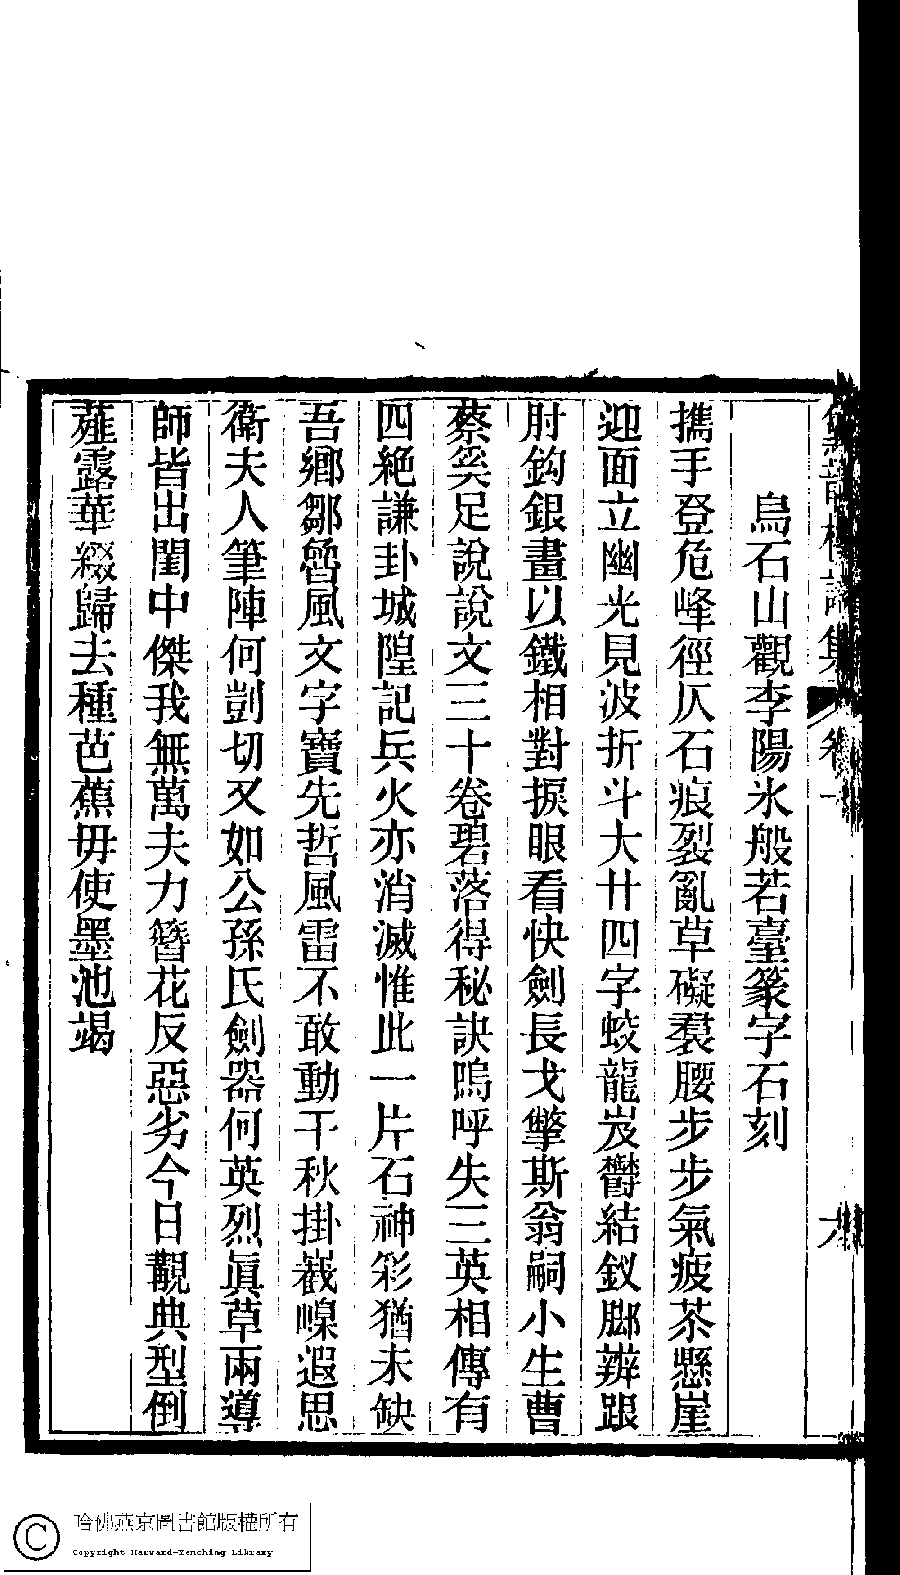 烏石山觀李陽氷般若臺篆字石刻
攜手登危峰徑仄石痕裂亂草礙裠腰步步氣疲苶懸崖
迎面立幽光見波折斗大廿四字蛟龍岌欎結釵腳辨跟
肘鈎銀畫以鐵相對捩眼看快劍長戈擎斯翁嗣小生曹
蔡奚足說說文三十卷碧落得秘訣嗚呼失三英相傳有
四絕謙卦城隍記兵火亦消滅惟此一片石神彩猶未缺
吾鄉鄒魯風文字寶先哲風雷不敢動千秋掛嶻嵲遐思
衛夫人筆陣何剴切又如公孫氏劍器何英烈眞草兩導
師皆出閨中傑我無萬夫力簪花反惡劣今日觀典型倒
薤露華綴歸去種芭蕉毋使墨池竭
詩集 卷一
哈佛燕京圖書館版權所有
Copyright Harvard-Yenching Library